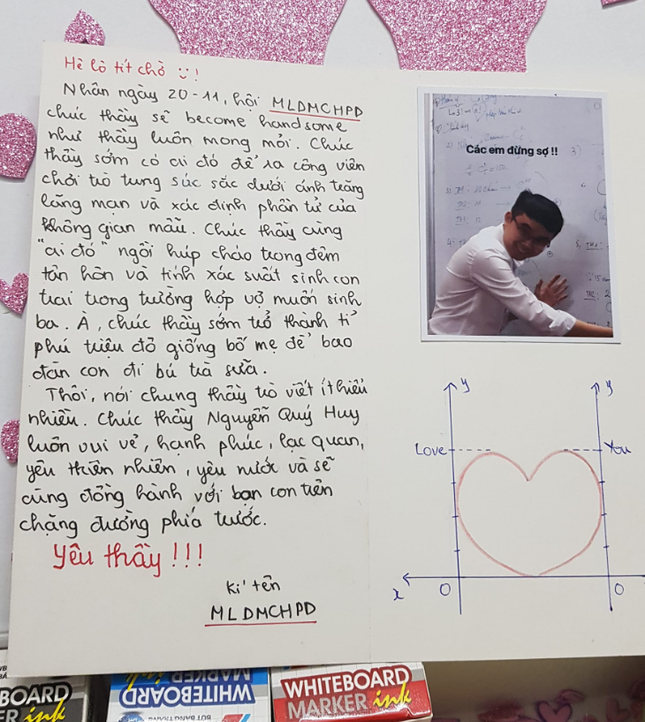 Hê lô tít chờ !
Nhân ngày 20-11, hội MLDMCHPD
chúc thầy sẽ become handsome
như thầy luôn mong mỏi. Chúc
thầy sớm có ai đó để ra công viên
chơi trò tung súc sắc dưới ánh trăng
lãng mạn và xác định phần tử của
không gian mẫu. Chúc thầy cùng
"ai đó" ngồi húp cháo trong đêm
tân hôn và tính xác suất sinh con
trai trong trường hợp vợ muốn sinh
ba. À, chúc thầy sớm trở thành tỉ
phú triệu đô giống bố mẹ để bao
đàn con đi bú trà sữa.
Thôi, nói chung thầy trò viết ít hiểu
nhiều. Chúc thầy Nguyễn Quý Huy
luôn vui vẻ, hạnh phúc, lạc quan,
yêu thiên nhiên, yêu nước và sẽ
cùng đồng hành với bọn con trên
chặng đường phía trước.
Yêu thầy !!!
Kí tên
MLDMCHPD
Các em đừng sợ !!
y
y
Love
You
x
O
O
BOARD
ER ink
WHITEBOARD
MARKER ink
WHITEBOARD
MARKER ink